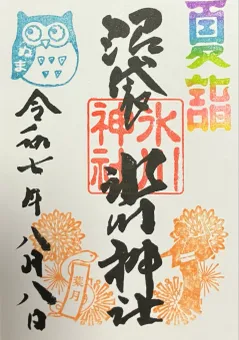 夏詣
沼袋 氷川神社
氷川
神社
ぬま
令和七年八月八日
葉月